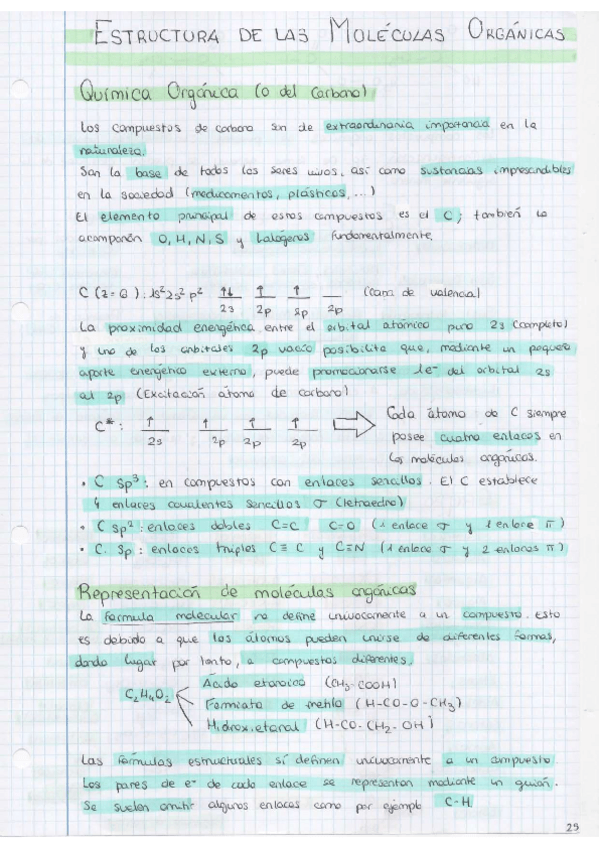 ESTRUCTURA DE LAS MOLÉCULAS ORGÁNICAS
Química Orgánica (o del carbono)
Los compuestos de carbono son de extraordinaria importancia en la
naturaleza.
Son la base de todos los seres vivos, así como sustancias imprescindibles
en la sociedad (medicamentos, plásticos, ...)
El elemento principal de estos compuestos es el C; también lo
acompañan O, H, N, S y halógenos fundamentalmente.
C (z=6): 1s² 2s² p² ↑↓ ↑ ↑ __ (capa de valencia)
2s 2p 2p 2p
La proximidad energética entre el orbital atómico puro 2s (completo)
y uno de los orbitales 2p vacío posibilita que, mediante un pequeño
aporte energético externo, puede promocionarse 1e⁻ del orbital 2s
al 2p (Excitación átomo de carbono)
C*: ↑ ↑ ↑ ↑
2s 2p 2p 2p
Cada átomo de C siempre
posee cuatro enlaces en
las moléculas orgánicas.
• C sp³: en compuestos con enlaces sencillos. El C establece
4 enlaces covalentes sencillos σ (tetraedro)
• C sp²: enlaces dobles C=C C=O (1 enlace σ y 1 enlace π)
• C. sp: enlaces triples C≡C y C≡N (1 enlace σ y 2 enlaces π)
Representación de moléculas orgánicas
La fórmula molecular no define unívocamente a un compuesto. Esto
es debido a que los átomos pueden unirse de diferentes formas,
dando lugar por tanto, a compuestos diferentes.
C₂H₄O₂
Ácido etanoico (CH₃-COOH)
Formiato de metilo (H-CO-O-CH₃)
Hidroxietanal (H-CO-CH₂-OH)
Las fórmulas estructurales sí definen unívocamente a un compuesto.
Los pares de e⁻ de cada enlace se representan mediante un guión.
Se suelen omitir algunos enlaces como por ejemplo C-H.
29